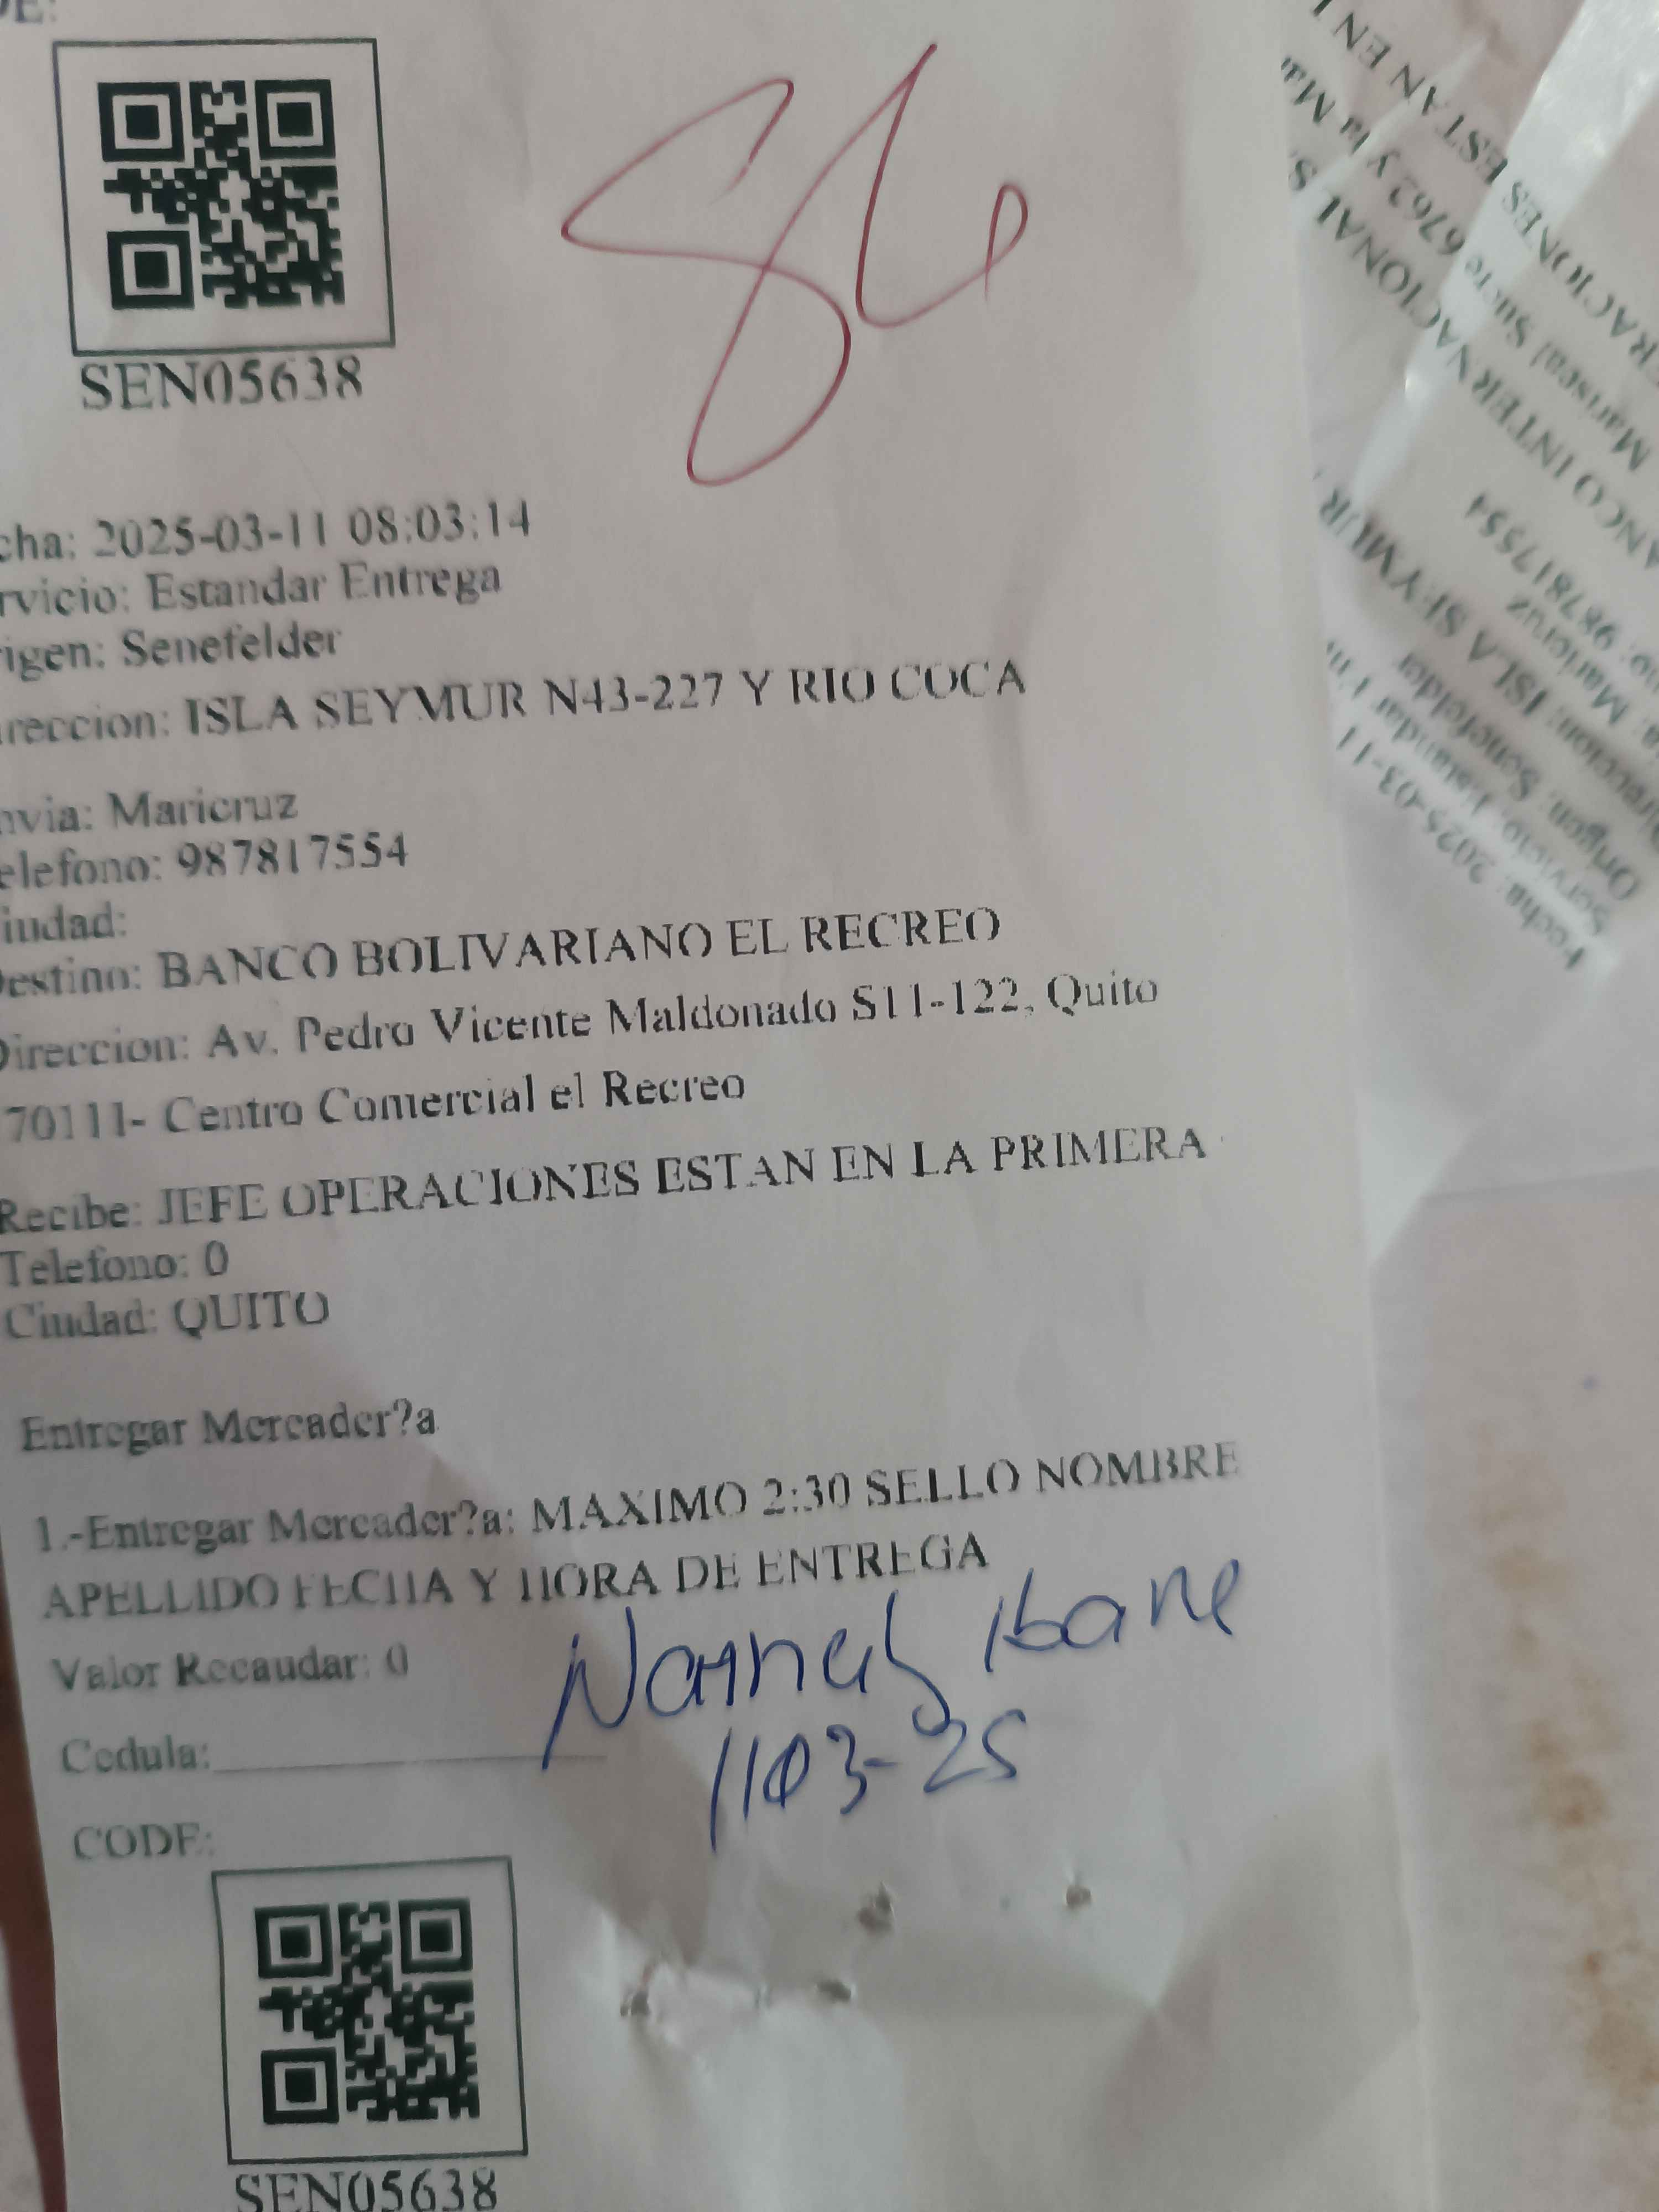 SEN05638
cha: 2025-03-11 08:03:14
rvicio: Estandar Entrega
igen: Senefelder
reccion: ISLA SEYMUR N43-227 Y RIO COCA
nvia: Maricruz
elefono: 987817554
iudad:
estino: BANCO BOLIVARIANO EL RECREO
Direccion: Av. Pedro Vicente Maldonado S11-122, Quito
70111- Centro Comercial el Recreo
Recibe: JEFE OPERACIONES ESTAN EN LA PRIMERA
Telefono: 0
Ciudad: QUITO
Entregar Mercader?a
1.-Entregar Mercader?a: MAXIMO 2:30 SELLO NOMBRE
APELLIDO FECHA Y HORA DE ENTREGA
Valor Recaudar: 0
1103-25
Cedula:
CODE:
SEN05638
Fecha: 2025-03-11
Servicio: Estandar
Origen: Senefelder
ireccion: ISLA SEYMUR
a: Maricruz
no: 987817554
ANCO INTERNACIONAL S
Mariscal Sucre 6762 y la Ma
ERACIONES ESTAN EN